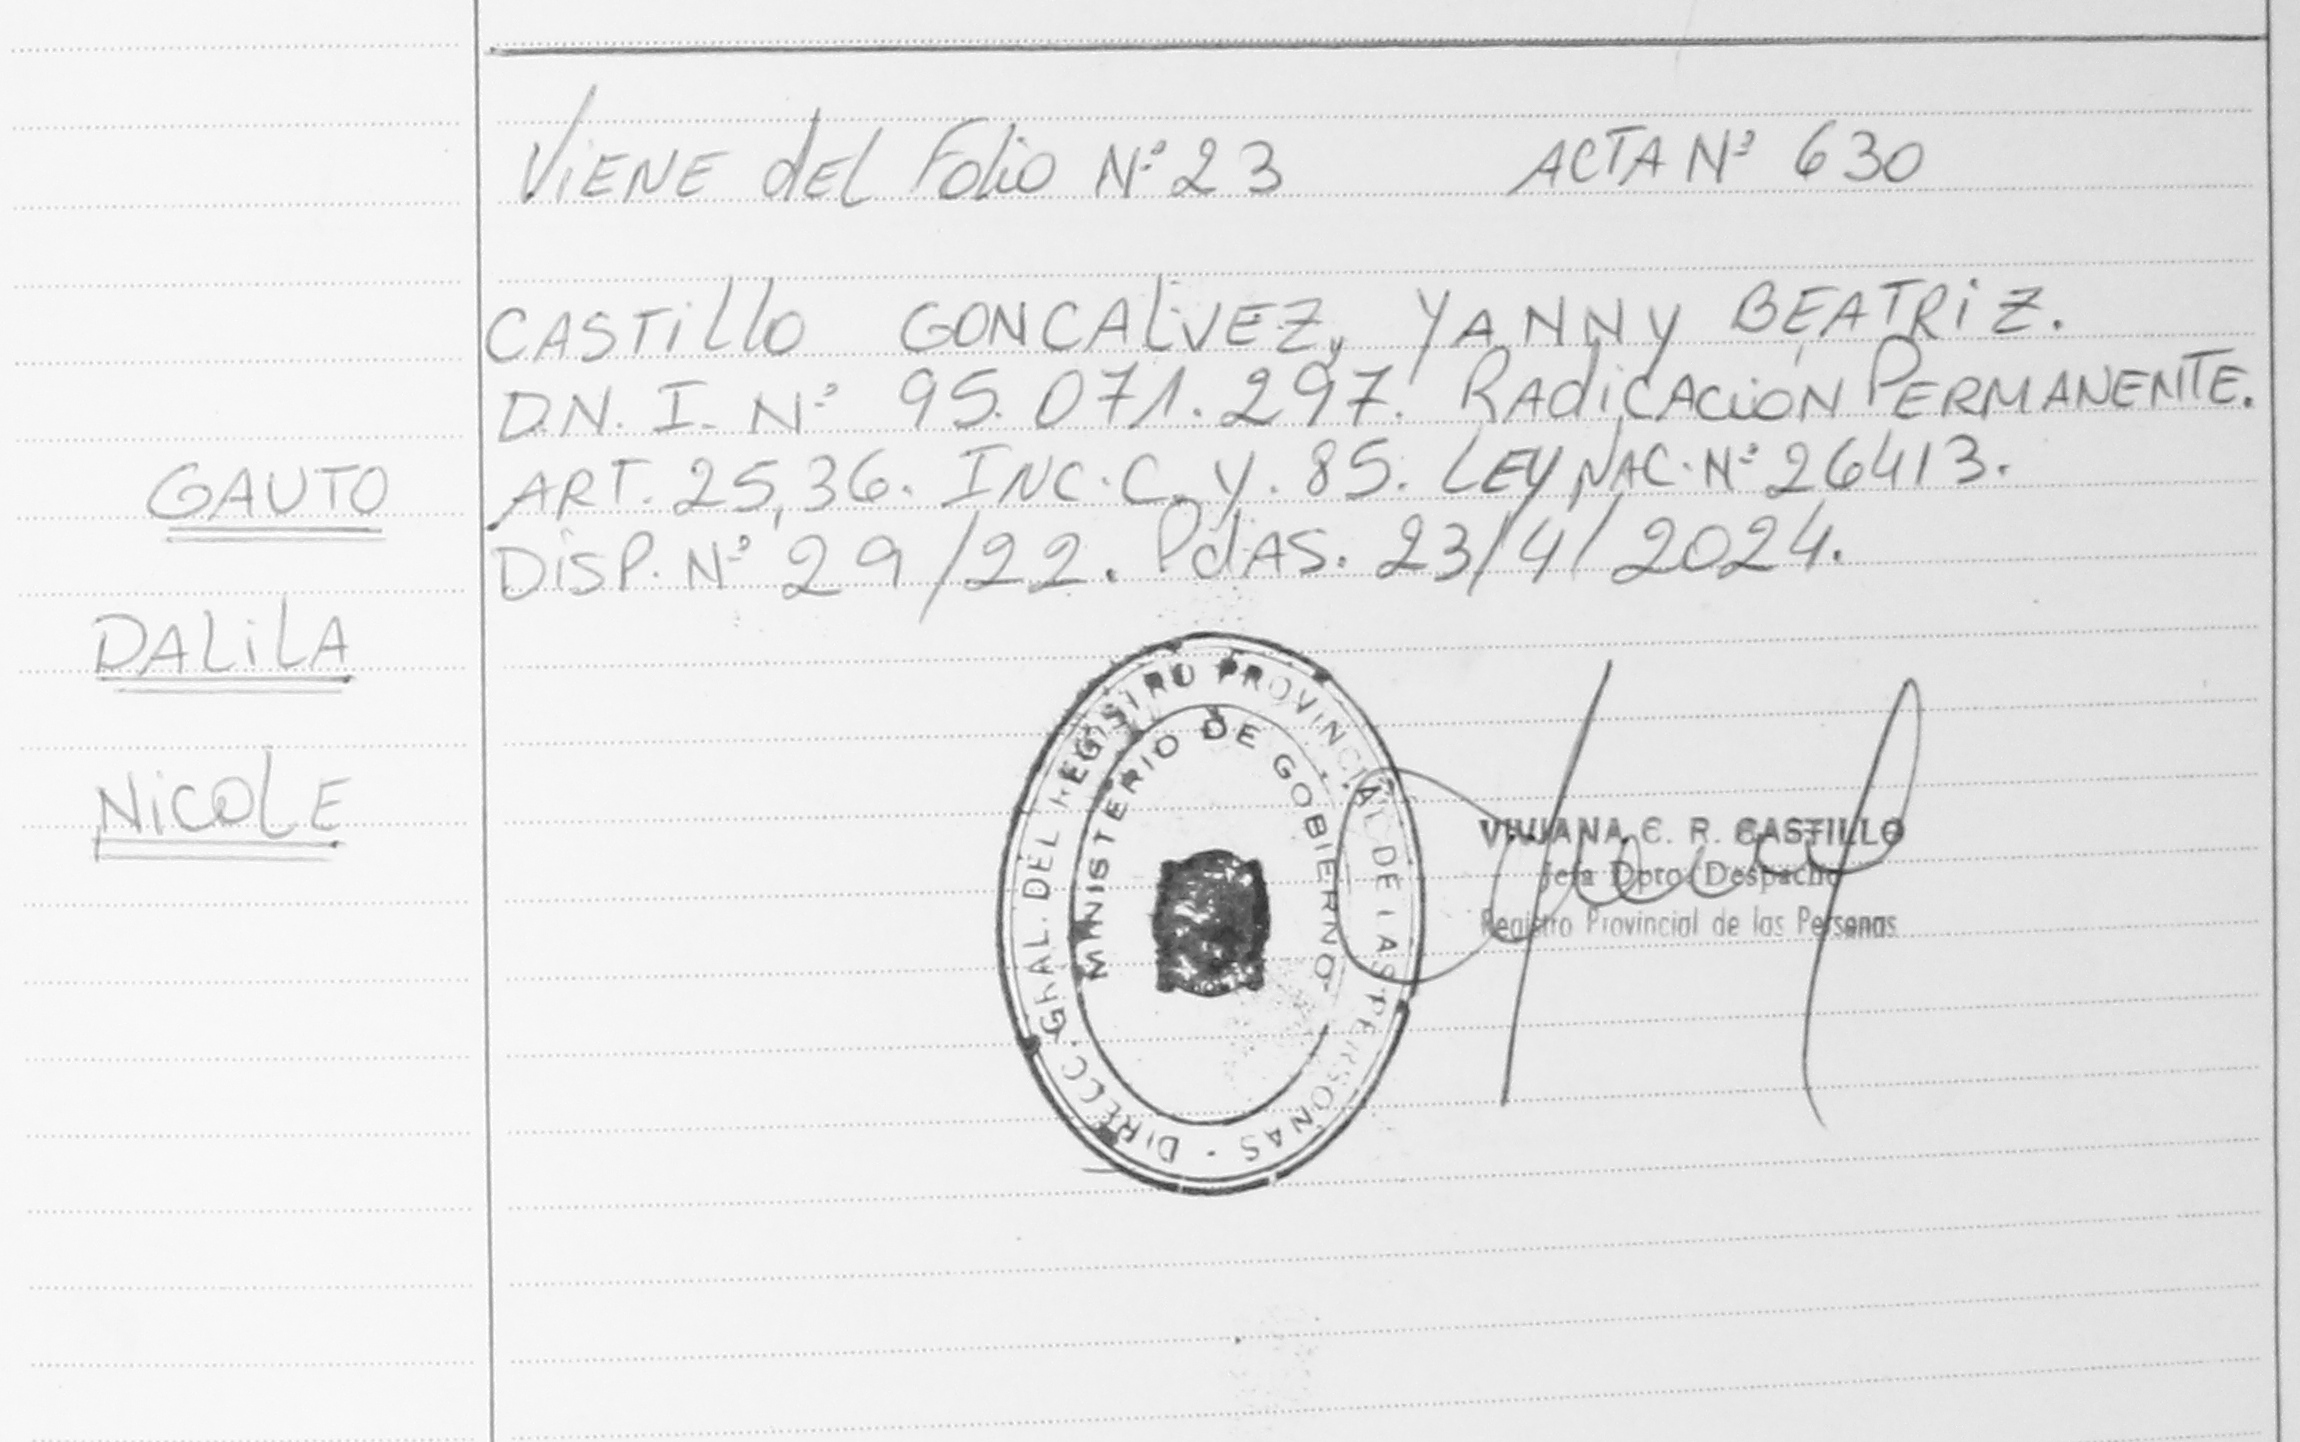 Viene del Folio Nº 23 ACTA Nº 630
CASTillo GONCALVEZ, YANNY BEATRIZ.
D.N.I. Nº 95.071.297. RADICACIÓN PERMANENTE.
ART. 25,36. INC. C. y. 85. LEY NAC. Nº 26413.
DISP. Nº 29/22. PdAS. 23/4/2024.
GAUTO
DALILA
NICOLE
DIRECC. GRAL. DEL REGISTRO PROVINCIAL DE LAS PERSONAS
MINISTERIO DE GOBIERNO
VIVIANA C. R. CASTILLO
Jefa Dpto Despacho
Registro Provincial de las Personas